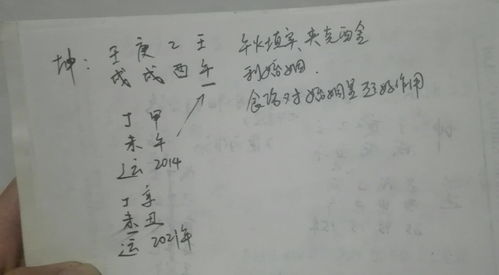 坤：壬庚乙壬
戌戌酉午
午火填实，夹克酉金
利婚姻.
食论对婚姻是起好作用
丁甲
未午
运2014
丁辛
未丑
运2021年